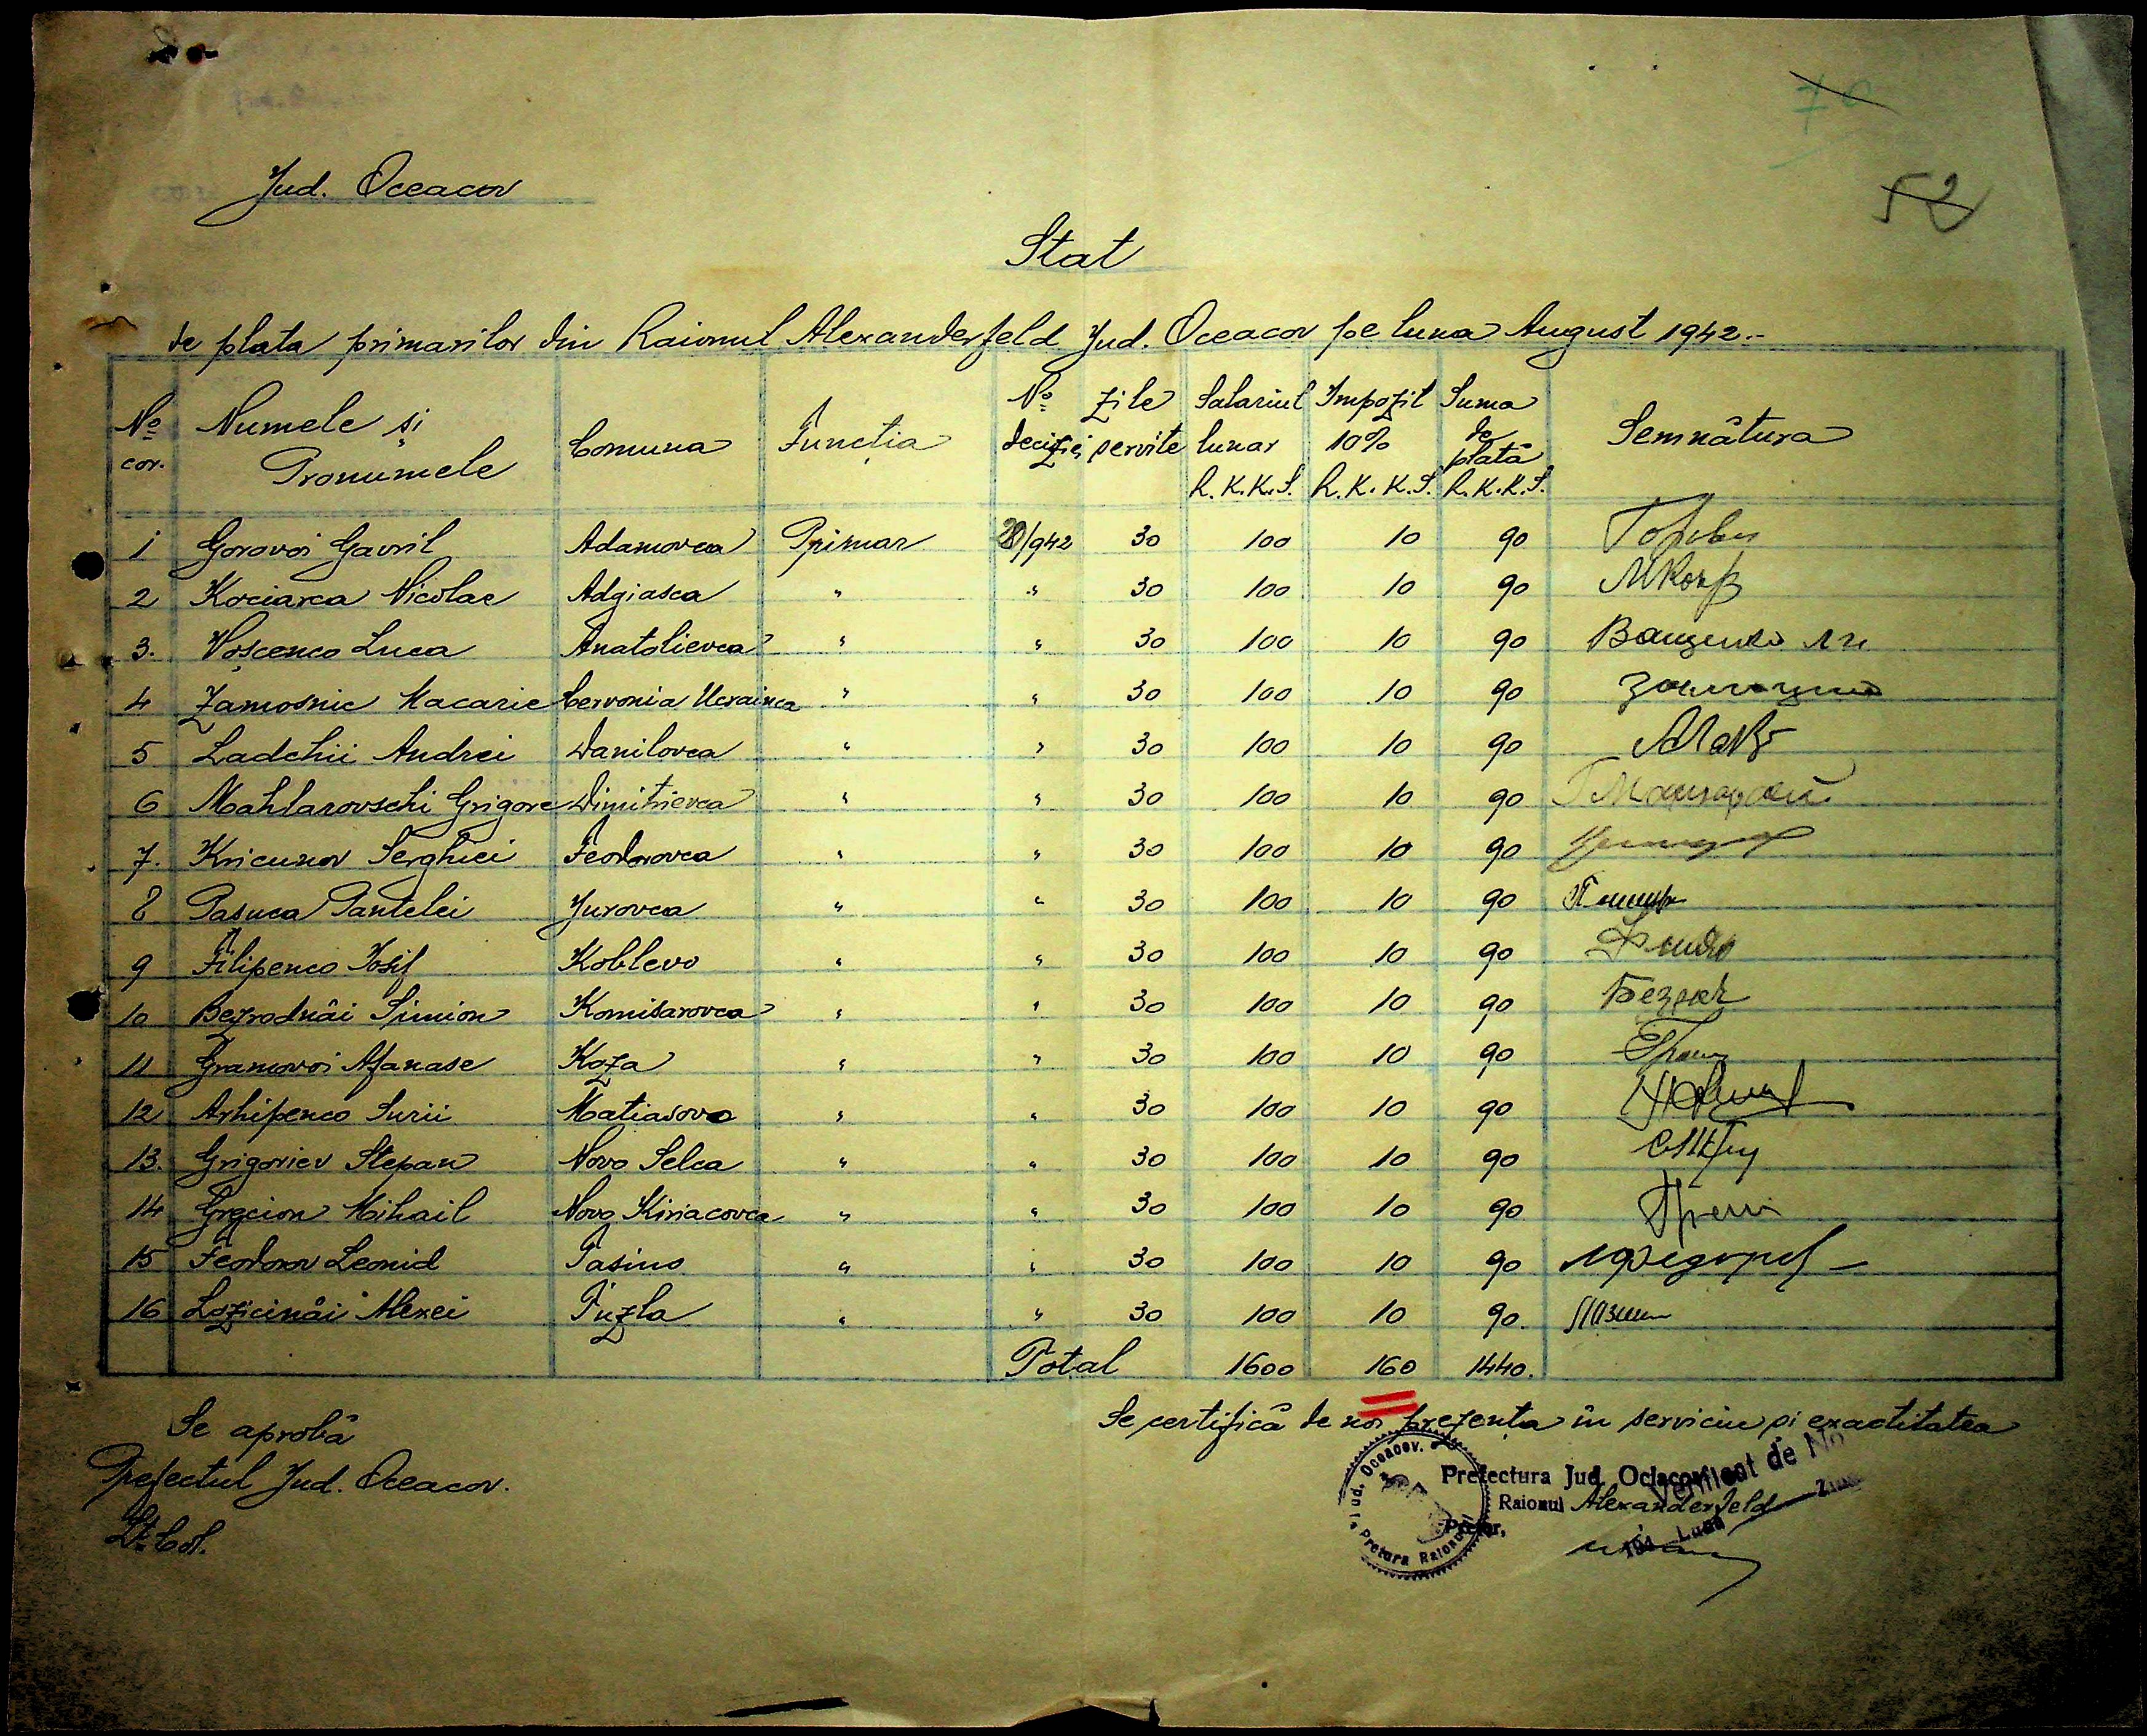 76
52
Jud. Oceacov
Stat
de plata primarilor din Raionul Alexanderfeld Jud. Oceacov pe luna August 1942.-
No cor. Numele și Pronumele Comuna Funcția No deciziei zile servite Salariul lunar R.K.K.S. Impozit 10% R.K.K.S. Suma de plată R.K.K.S. Semnătura
1 Goravoi Gavril Adamovca Primar 28/942 30 100 10 90
2 Kociarca Nicolae Adgiasca " " 30 100 10 90
3. Voșcenco Luca Anatolievca " " 30 100 10 90 Ващенко
4 Zamosnic Macarie Cervonia Ucrainca " " 30 100 10 90
5 Ladchii Andrei Danilovca " " 30 100 10 90
6 Mahlarovschi Grigore Dimitrievca " " 30 100 10 90
7. Kricunov Serghiei Feodorovca " " 30 100 10 90
8 Pasuca Pantelei Jurovca " " 30 100 10 90
9 Filipenco Iosif Koblevo " " 30 100 10 90
10 Bezrodnâi Simion Komisarovca " " 30 100 10 90
11 Gramovoi Afanase Koza " " 30 100 10 90
12 Arhipenco Iurii Matiasovo " " 30 100 10 90
13. Grigoriev Stepan Novo Selca " " 30 100 10 90
14 Grecion Mihail Novo Kiriacovca " " 30 100 10 90
15 Feodorov Leonid Tasino " " 30 100 10 90
16 Lozicinâi Alexei Tuzla " " 30 100 10 90.
Total 1600 160 1440.
Se aprobă
Prefectul Jud. Oceacov.
Lt. Col.
Se certifică de noi prezența în serviciu și exactitatea
Prefectura Jud. Oceacov
Raionul Alexanderfeld
Pretor,
Verificat de No
194 Luna Ziua
Jud. Oceacov. Pretura Raionul